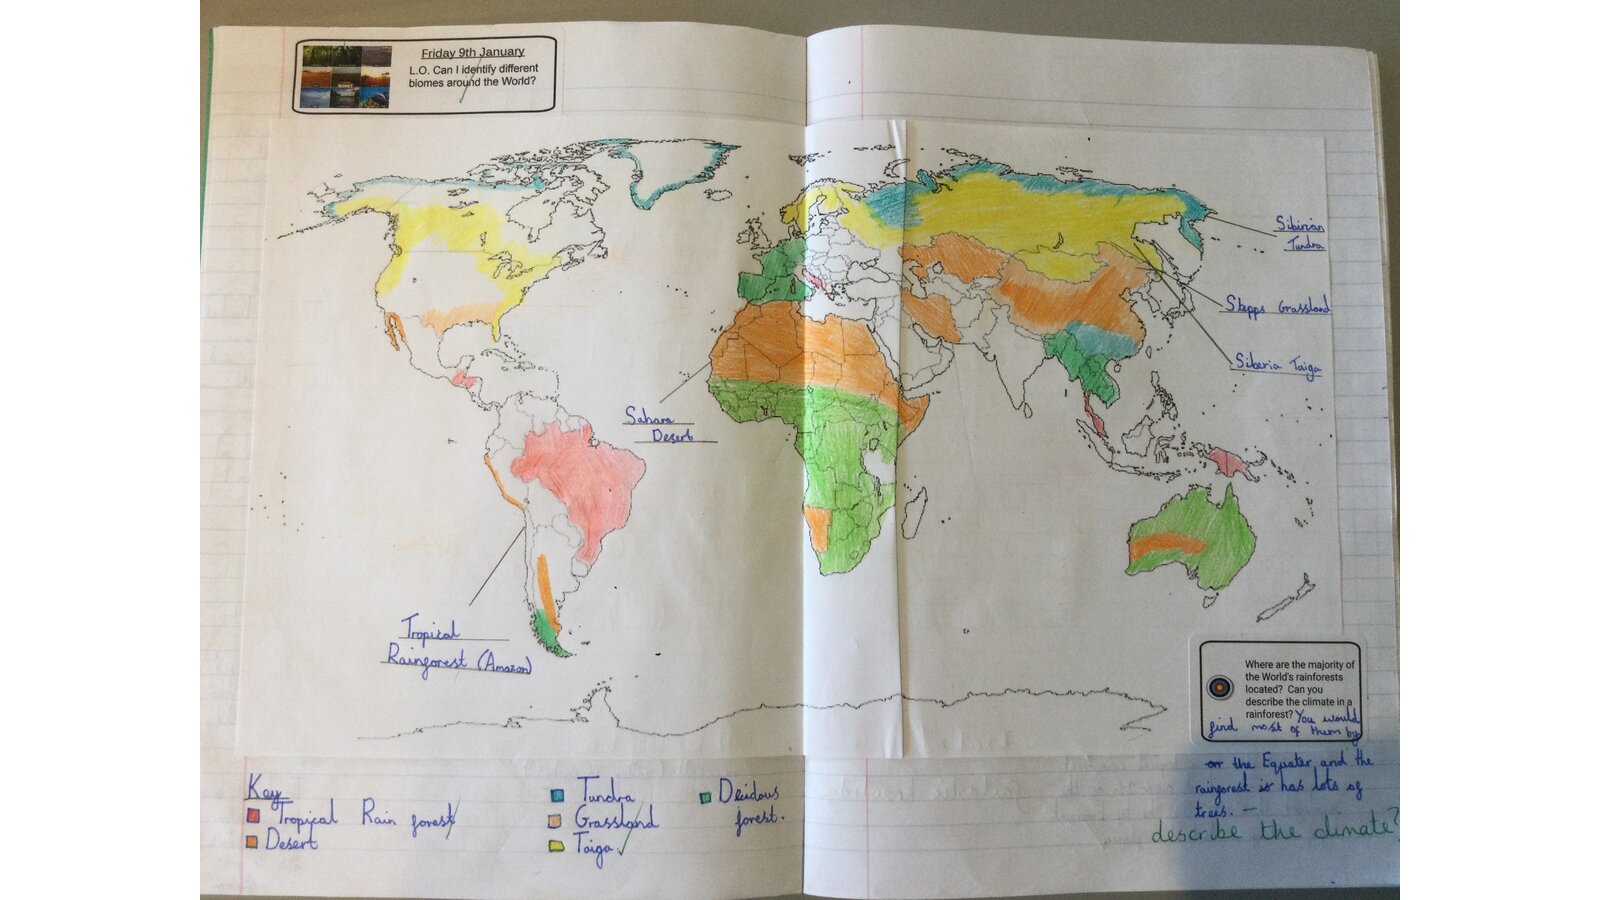 Friday 9th January
L.O. Can I identify different
biomes around the World?
Sibirian
Tundra
Stepps Grassland
Siberia Taiga
Sahara
Desert
Tropical
Rainforest (Amazon)
Where are the majority of
the World's rainforests
located? Can you
describe the climate in a
rainforest? You would
find most of them by
the Equater and the
rainforest is has lots of
trees. –
describe the climate?
Key
Tropical Rain forest
Desert
Tundra
Grassland
Taiga
Deidous
forest.